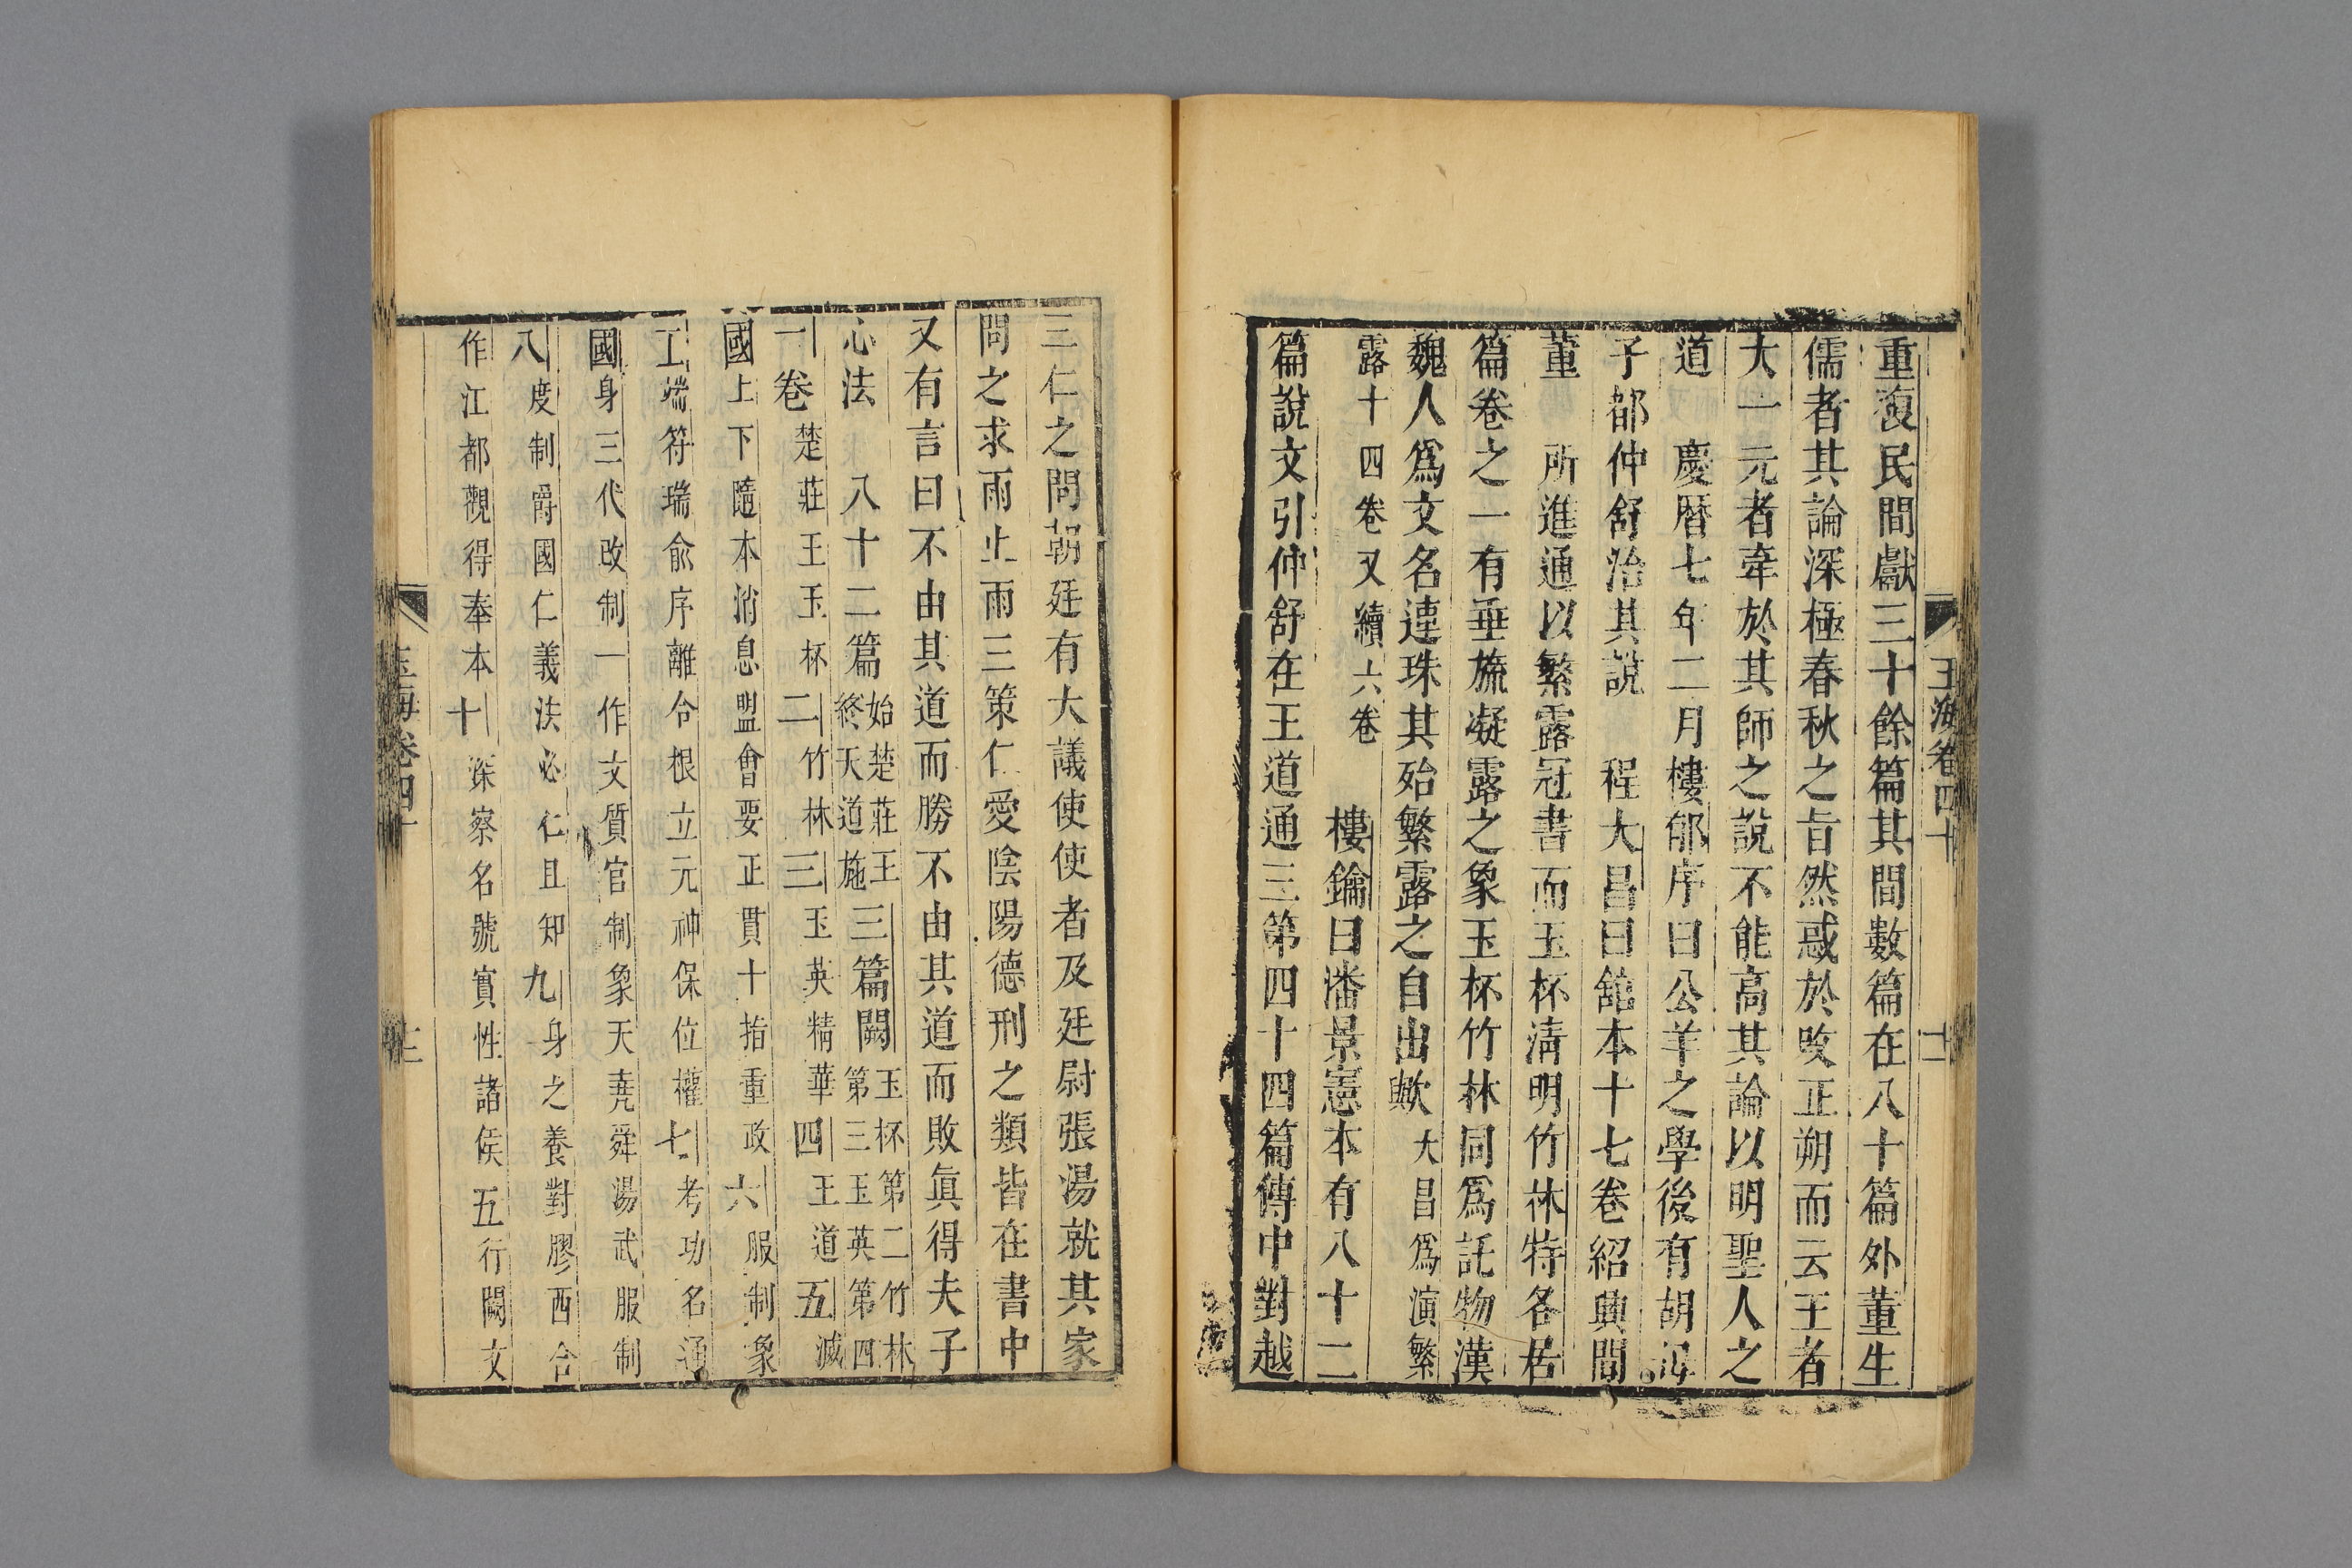 重復民間獻三十餘篇其間數篇在八十篇外董生
儒者其論深極春秋之旨然惑於改正朔而云王者
大一元者牽於其師之說不能高其論以明聖人之
道　慶曆七年二月樓郁序曰公羊之學後有胡母
子都仲舒治其說　程大昌曰館本十七卷紹興間
董　所進通以繁露冠書而玉杯淸明竹林特各居
篇卷之一有垂旒凝露之象玉杯竹林同爲託物漢
魏人爲文名連珠其殆繁露之自出歟大昌爲演繁
露十四卷又續六卷　樓鑰曰潘景憲本有八十二
篇說文引仲舒在王道通三第四十四篇傳中對越
玉海卷四十
三仁之問朝廷有大議使使者及廷尉張湯就其家
問之求雨止雨三策仁愛陰陽德刑之類皆在書中
又有言曰不由其道而勝不由其道而敗眞得夫子
心法　八十二篇始楚莊王終天道施三篇闕玉杯第二竹林第三玉英第四
一卷楚莊王玉杯二竹林三玉英精華四王道五滅
國上下隨本消息盟會要正貫十指重政六服制象
二端符瑞俞序離合根立元神保位權七考功名通
國身三代改制一作文質官制象天堯舜湯武服制
八度制爵國仁義法必仁且知九身之養對膠西合
作江都觀得奉本十深察名號實性諸侯五行闕文
玉海卷四十